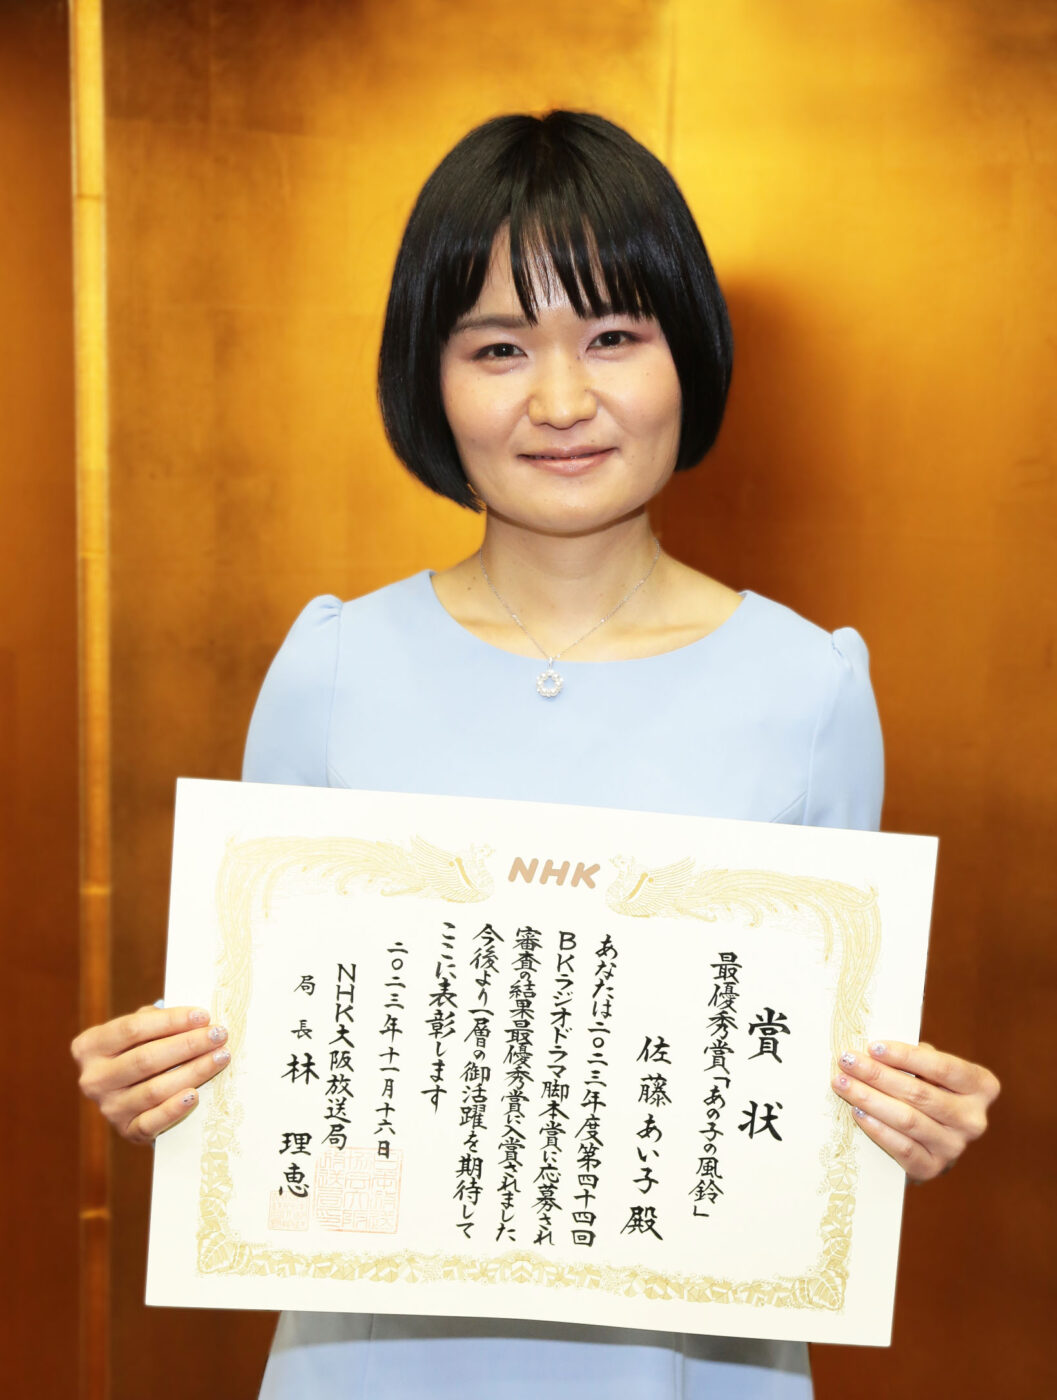 NHK
賞状
最優秀賞「あの子の風鈴」
佐藤あい子殿
あなたは二〇二三年度第四十四回
BKラジオドラマ脚本賞に応募され
審査の結果最優秀賞に入賞されました
今後より一層の御活躍を期待して
ここに表彰します
二〇二三年十一月十六日
NHK大阪放送局
局長 林 理恵